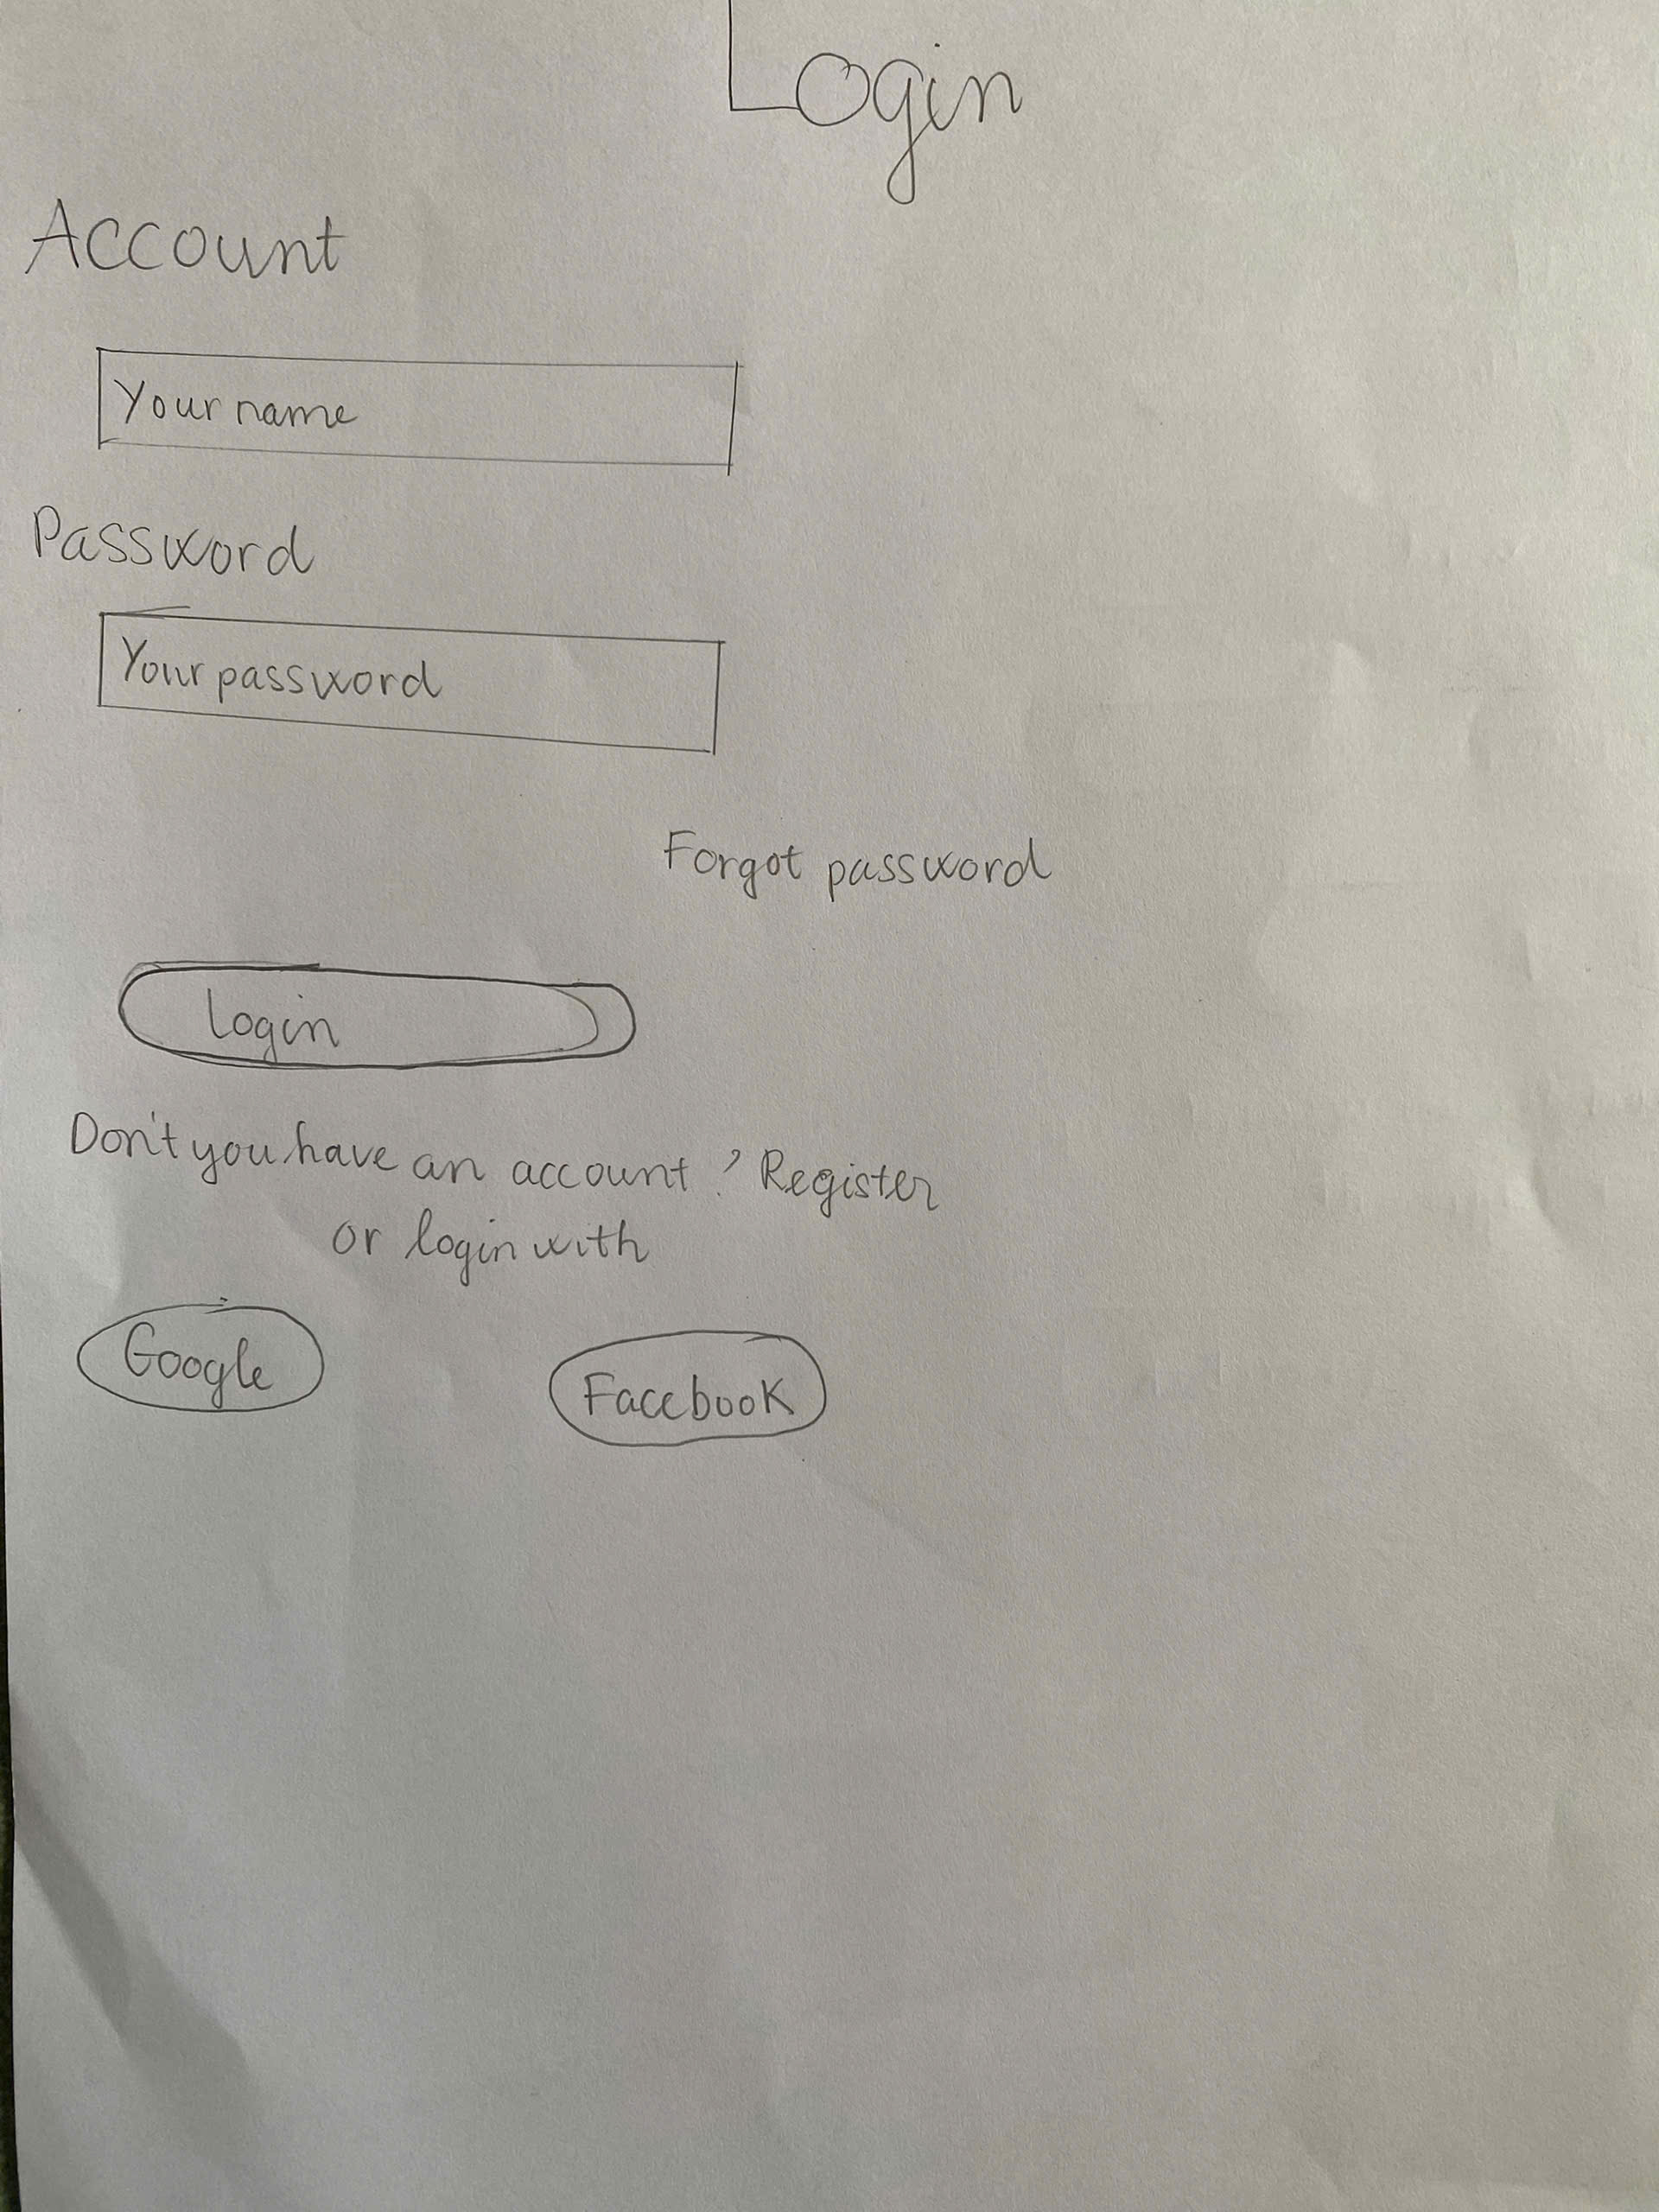 Login
Account
Your name
Password
Your password
Forgot password
Login
Don't you have an account? Register
or login with
Google
Facebook